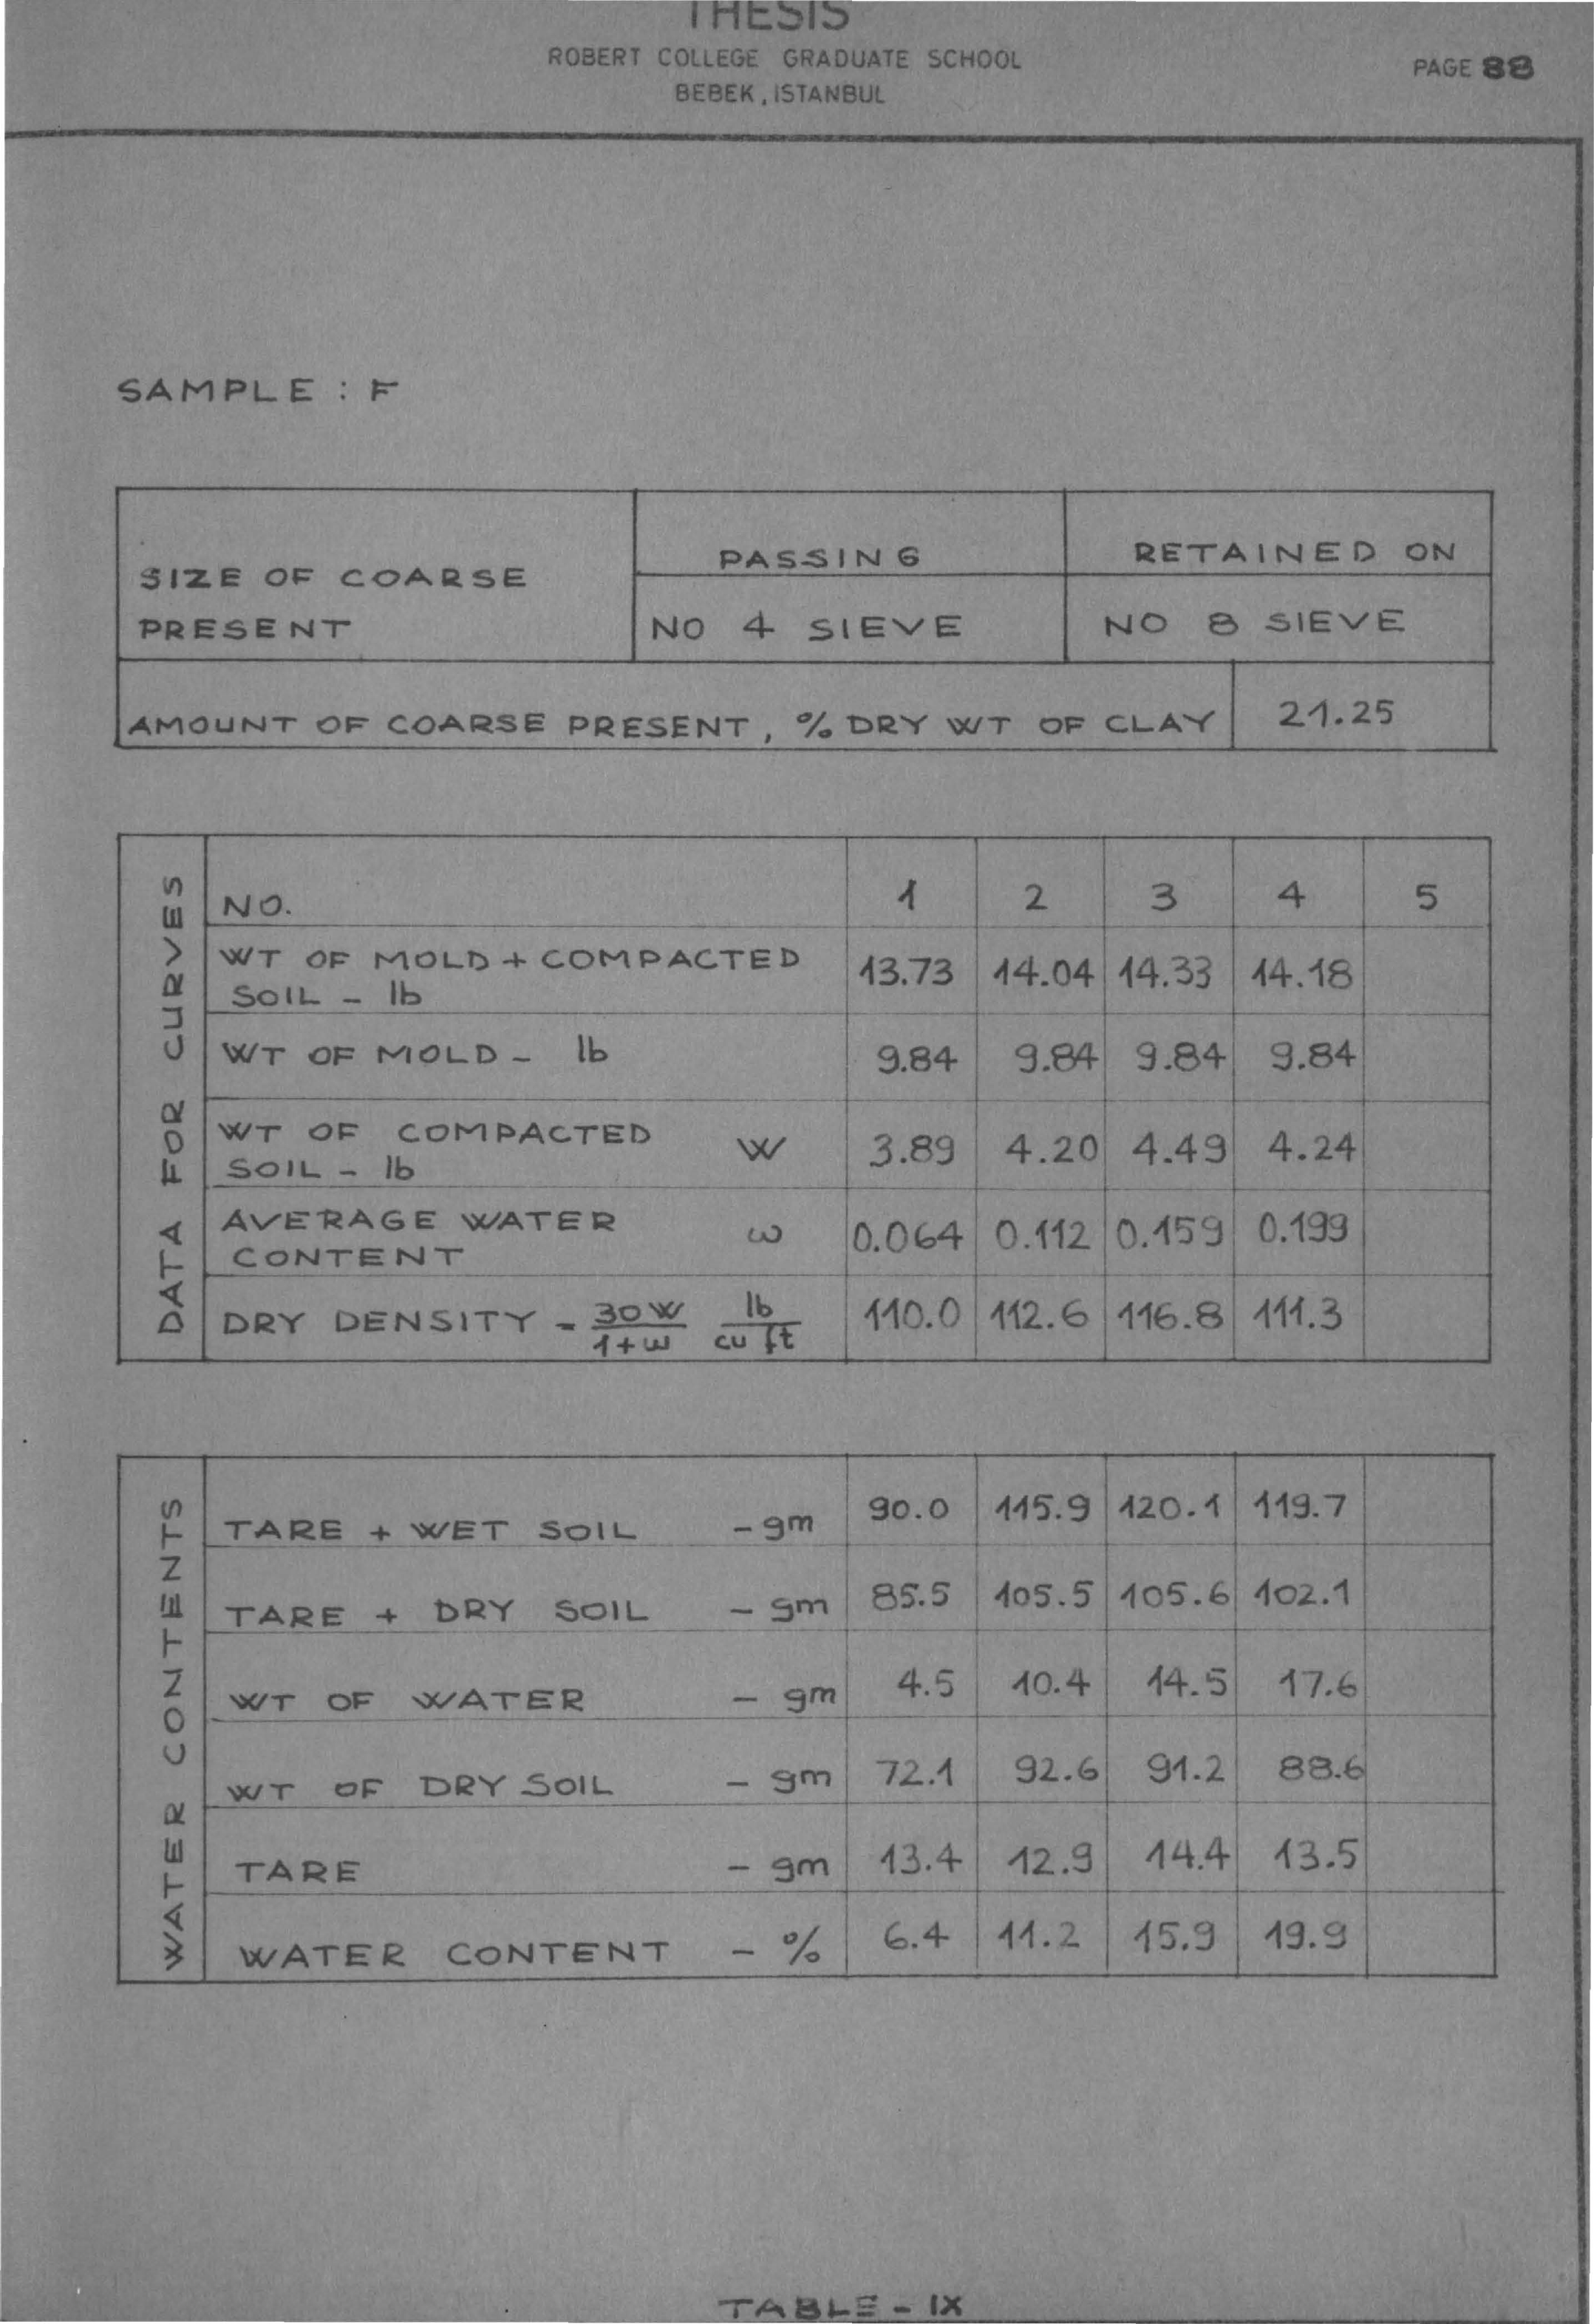 THESIS
ROBERT COLLEGE GRADUATE SCHOOL
BEBEK, ISTANBUL
PAGE 88
SAMPLE : F
SIZE OF COARSE
PRESENT
PASSING
RETAINED ON
NO 4 SIEVE
NO 8 SIEVE
AMOUNT OF COARSE PRESENT, % DRY WT OF CLAY 21.25
DATA FOR CURVES
NO. 1 2 3 4 5
WT OF MOLD + COMPACTED
SOIL - lb
13.73 14.04 14.33 14.18
WT OF MOLD - lb 9.84 9.84 9.84 9.84
WT OF COMPACTED
SOIL - lb
W 3.89 4.20 4.49 4.24
AVERAGE WATER
CONTENT
ω 0.064 0.112 0.159 0.199
DRY DENSITY - 30W/1+ω lb/cu ft 110.0 112.6 116.8 111.3
WATER CONTENTS
TARE + WET SOIL - gm 90.0 115.9 120.1 119.7
TARE + DRY SOIL - gm 85.5 105.5 105.6 102.1
WT OF WATER - gm 4.5 10.4 14.5 17.6
WT OF DRY SOIL - gm 72.1 92.6 91.2 88.6
TARE - gm 13.4 12.9 14.4 13.5
WATER CONTENT - % 6.4 11.2 15.9 19.9
TABLE - IX